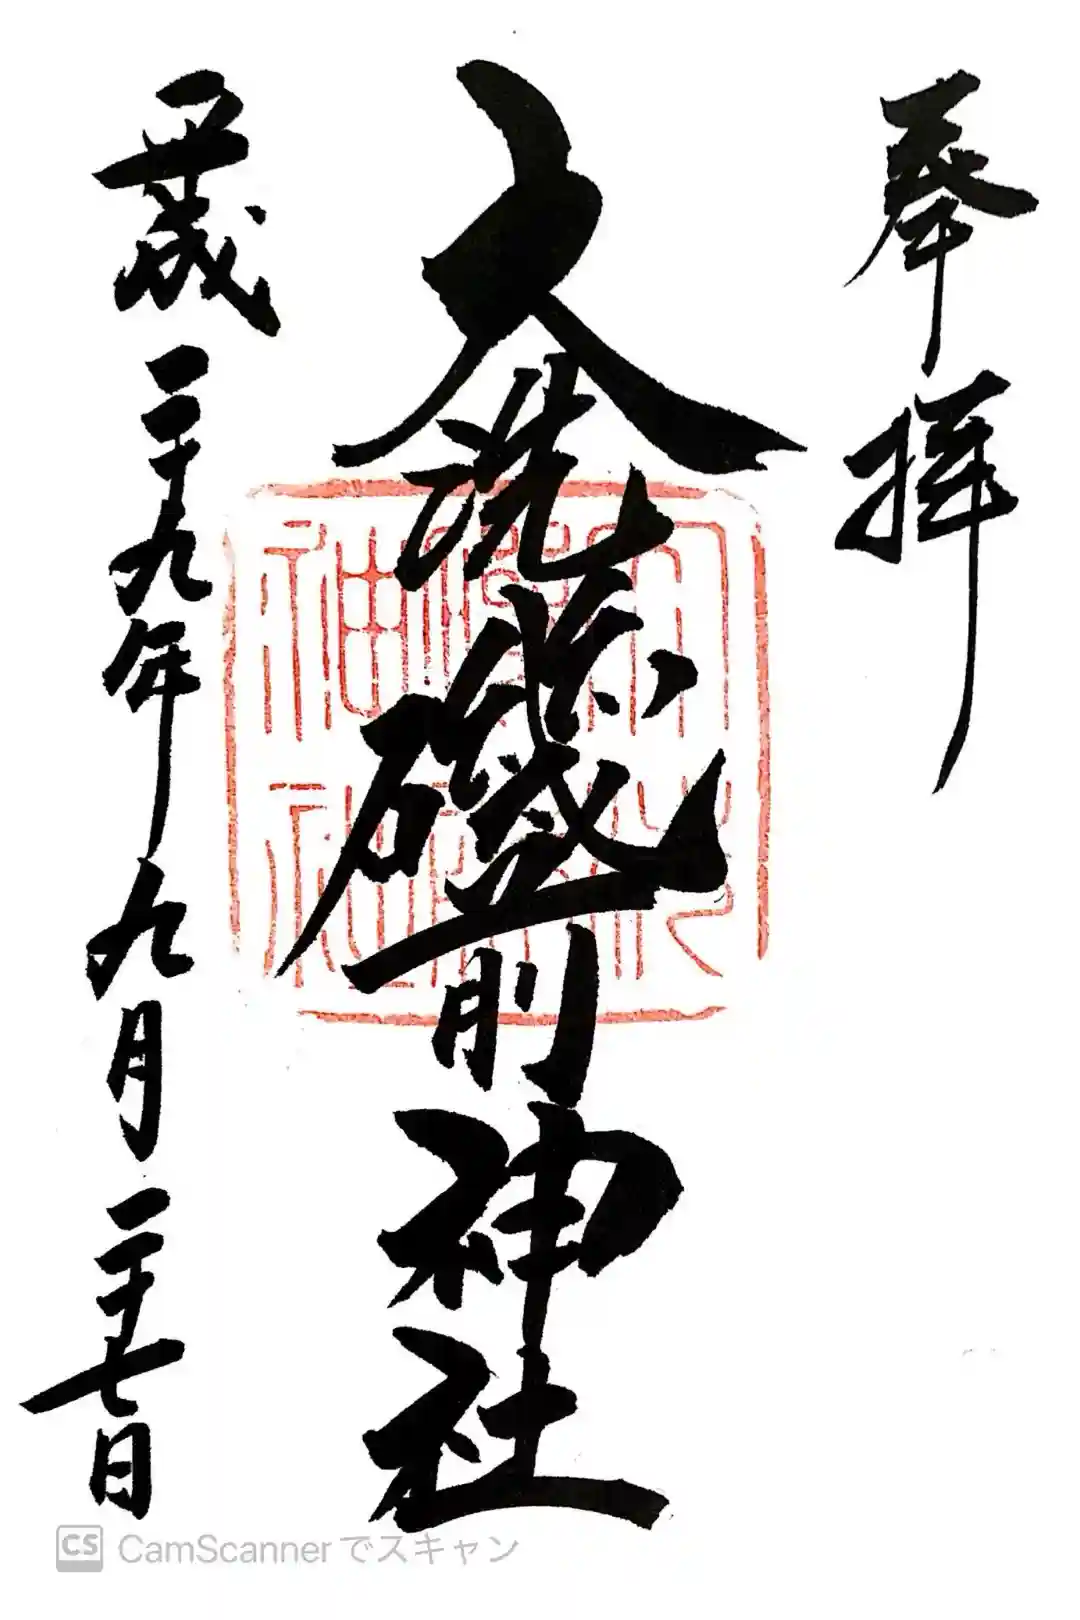 奉拝
大洗磯前神社
平成二十九年九月二十七日
CS CamScannerでスキャン